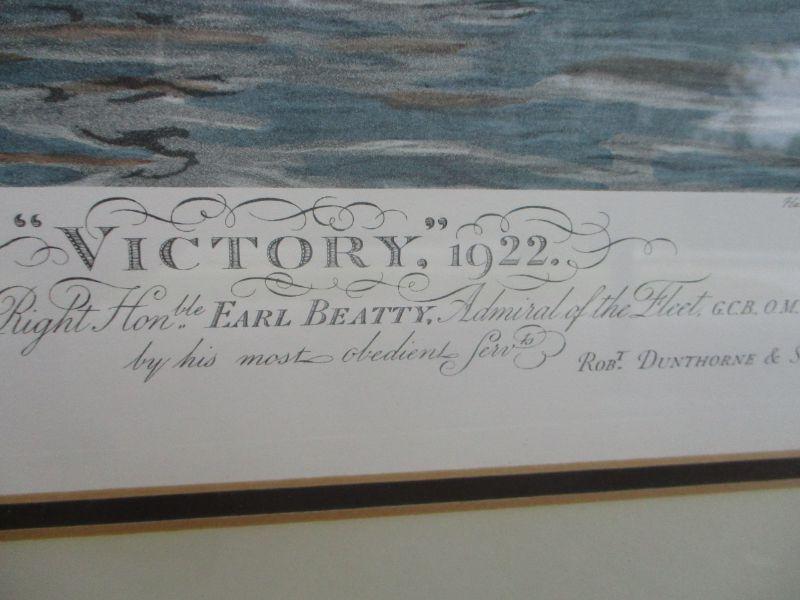 “VICTORY,” 1922.
Right Honble. EARL BEATTY, Admiral of the Fleet, G.C.B. O.M.
by his most obedient Servts ROBT. DUNTHORNE & S